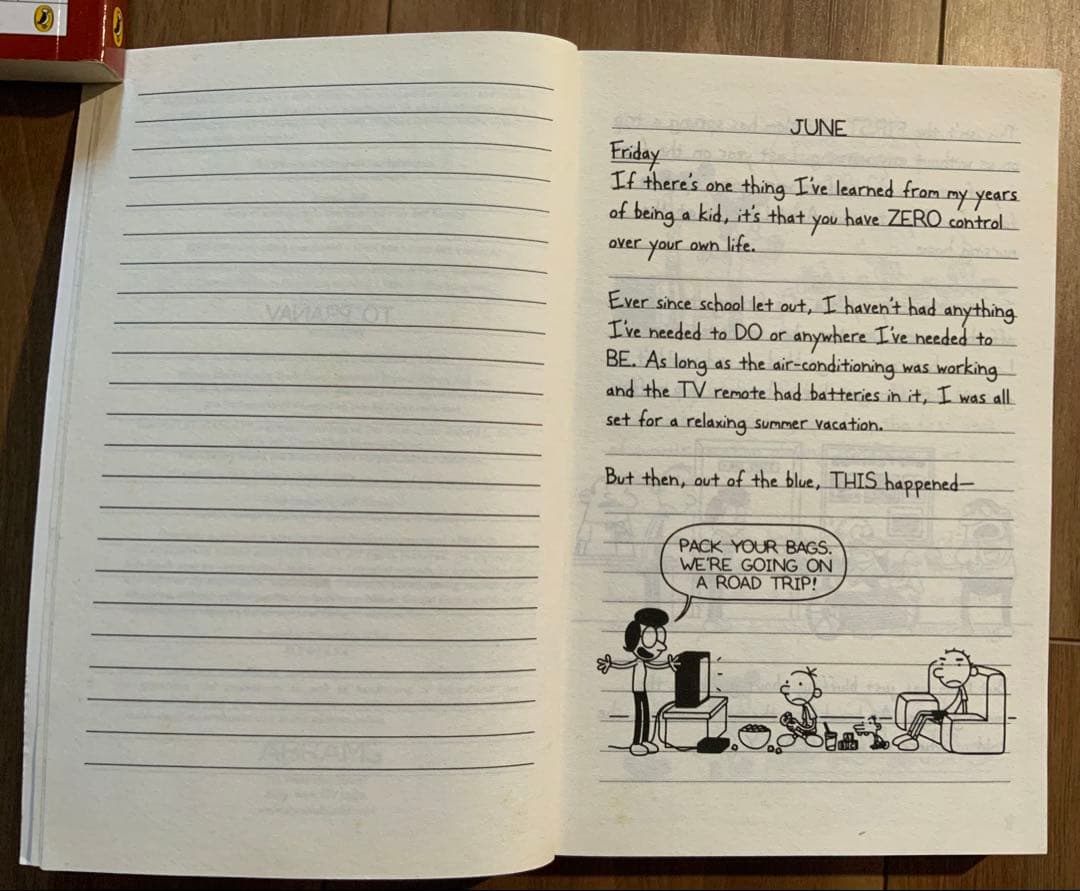 JUNE
Friday
If there's one thing I've learned from my years
of being a kid, it's that you have ZERO control
over your own life.
Ever since school let out, I haven't had anything
I've needed to DO or anywhere I've needed to
BE. As long as the air-conditioning was working
and the TV remote had batteries in it, I was all
set for a relaxing summer vacation.
But then, out of the blue, THIS happened—
PACK YOUR BAGS.
WE'RE GOING ON
A ROAD TRIP!
TO PRANAV